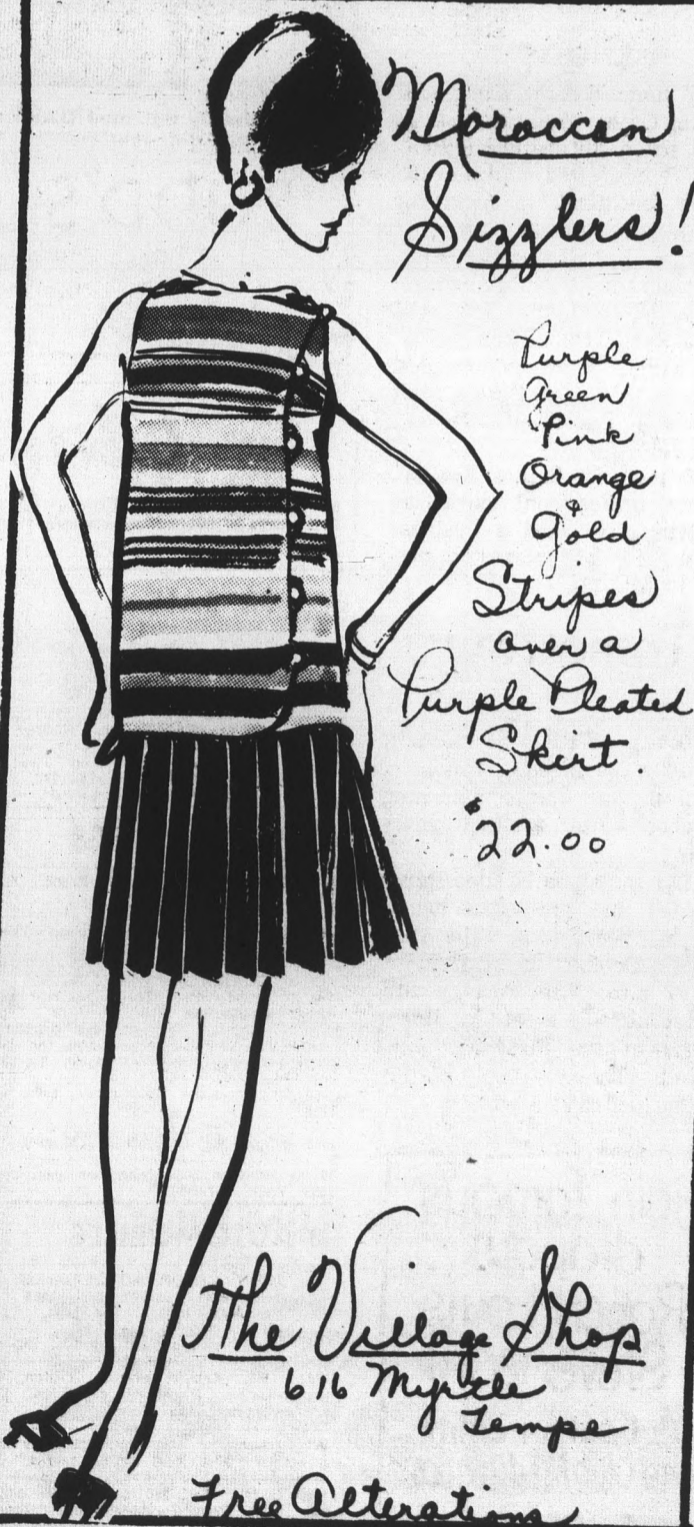 Moroccan
Sizzlers!
Purple
Green
Pink
Orange
&
Gold
Stripes
over a
Purple Pleated
Skirt.
$22.00
The Village Shop
616 Myrtle
Tempe
Free Alterations